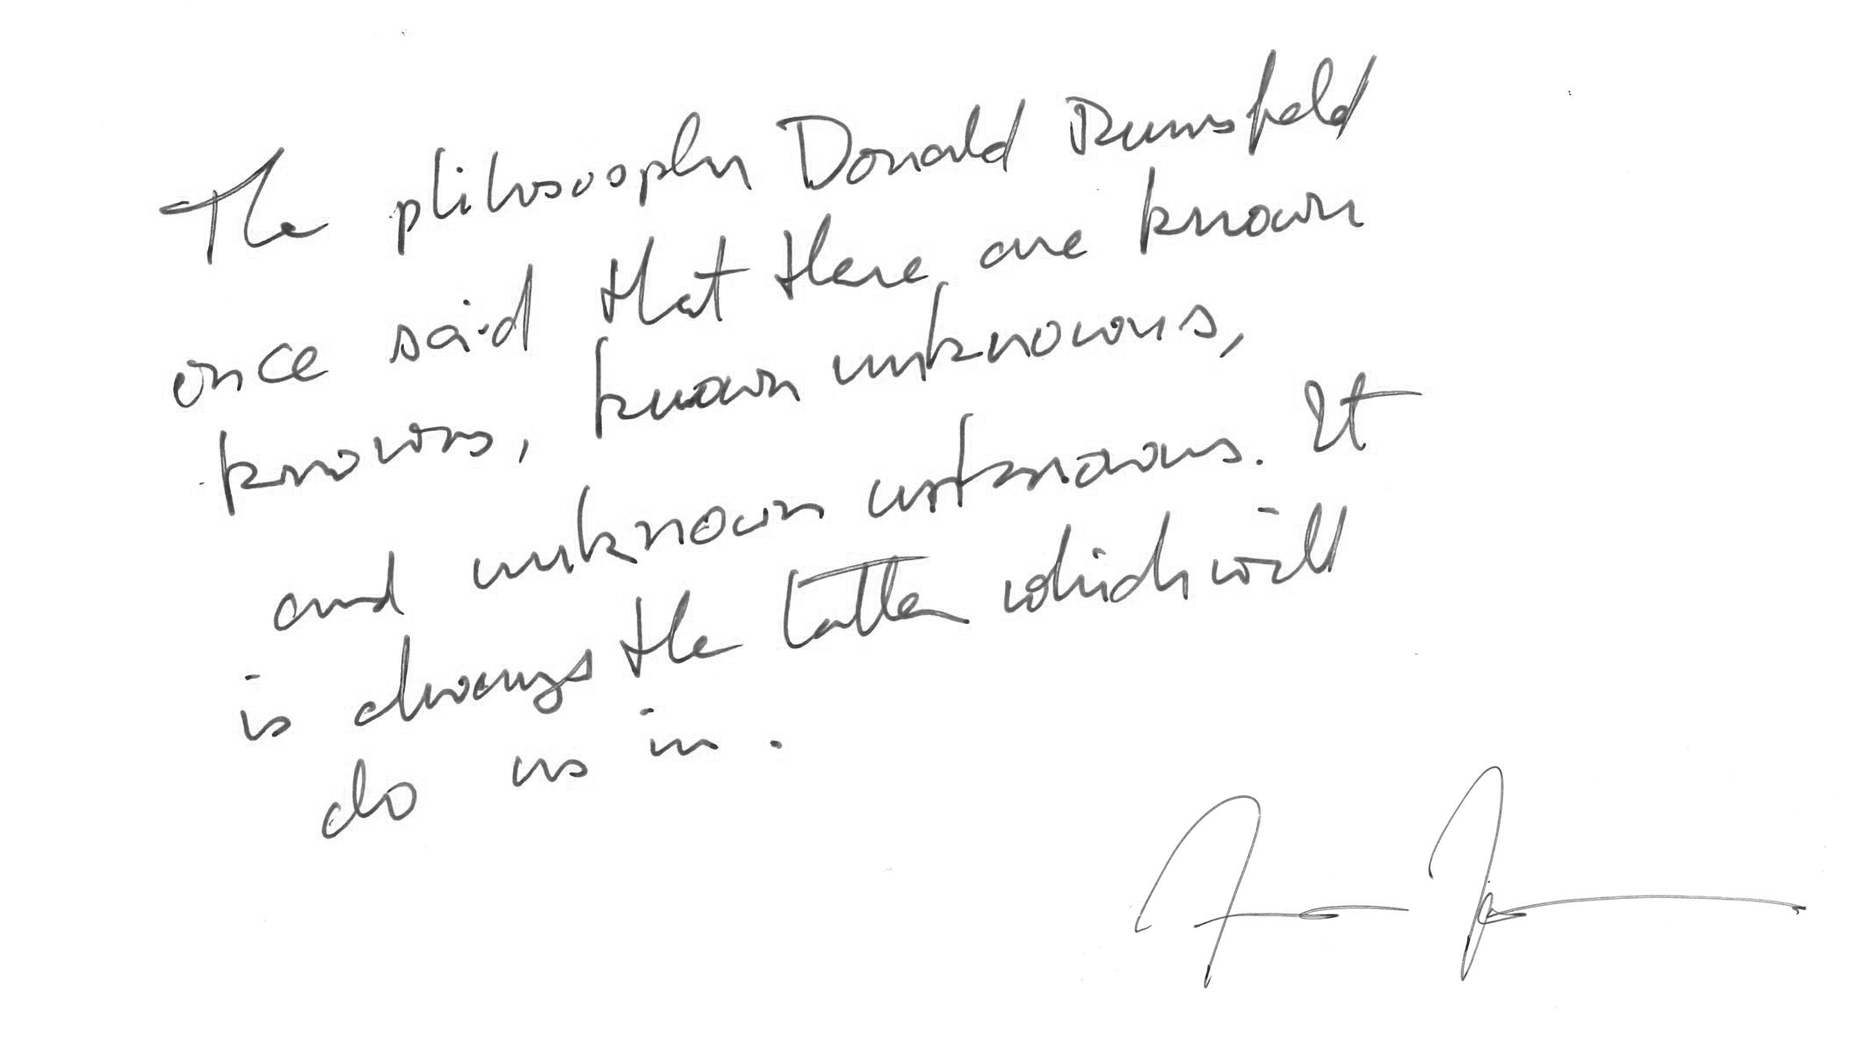 The philosopher Donald Rumsfeld
once said that there are known
knowns, known unknowns,
and unknown unknowns. It
is always the latter which will
do us in.